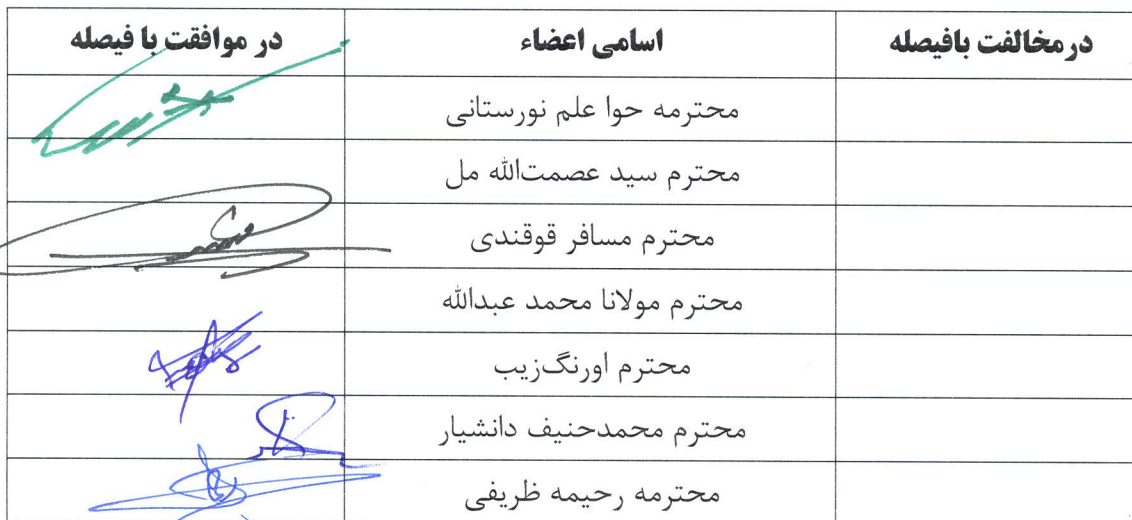 درمخالفت بافیصله اسامی اعضاء در موافقت با فیصله
محترمه حوا علم نورستانی
محترم سید عصمت‌الله مل
محترم مسافر قوقندی
محترم مولانا محمد عبدالله
محترم اورنگ‌زیب
محترم محمدحنیف دانشیار
محترمه رحیمه ظریفی